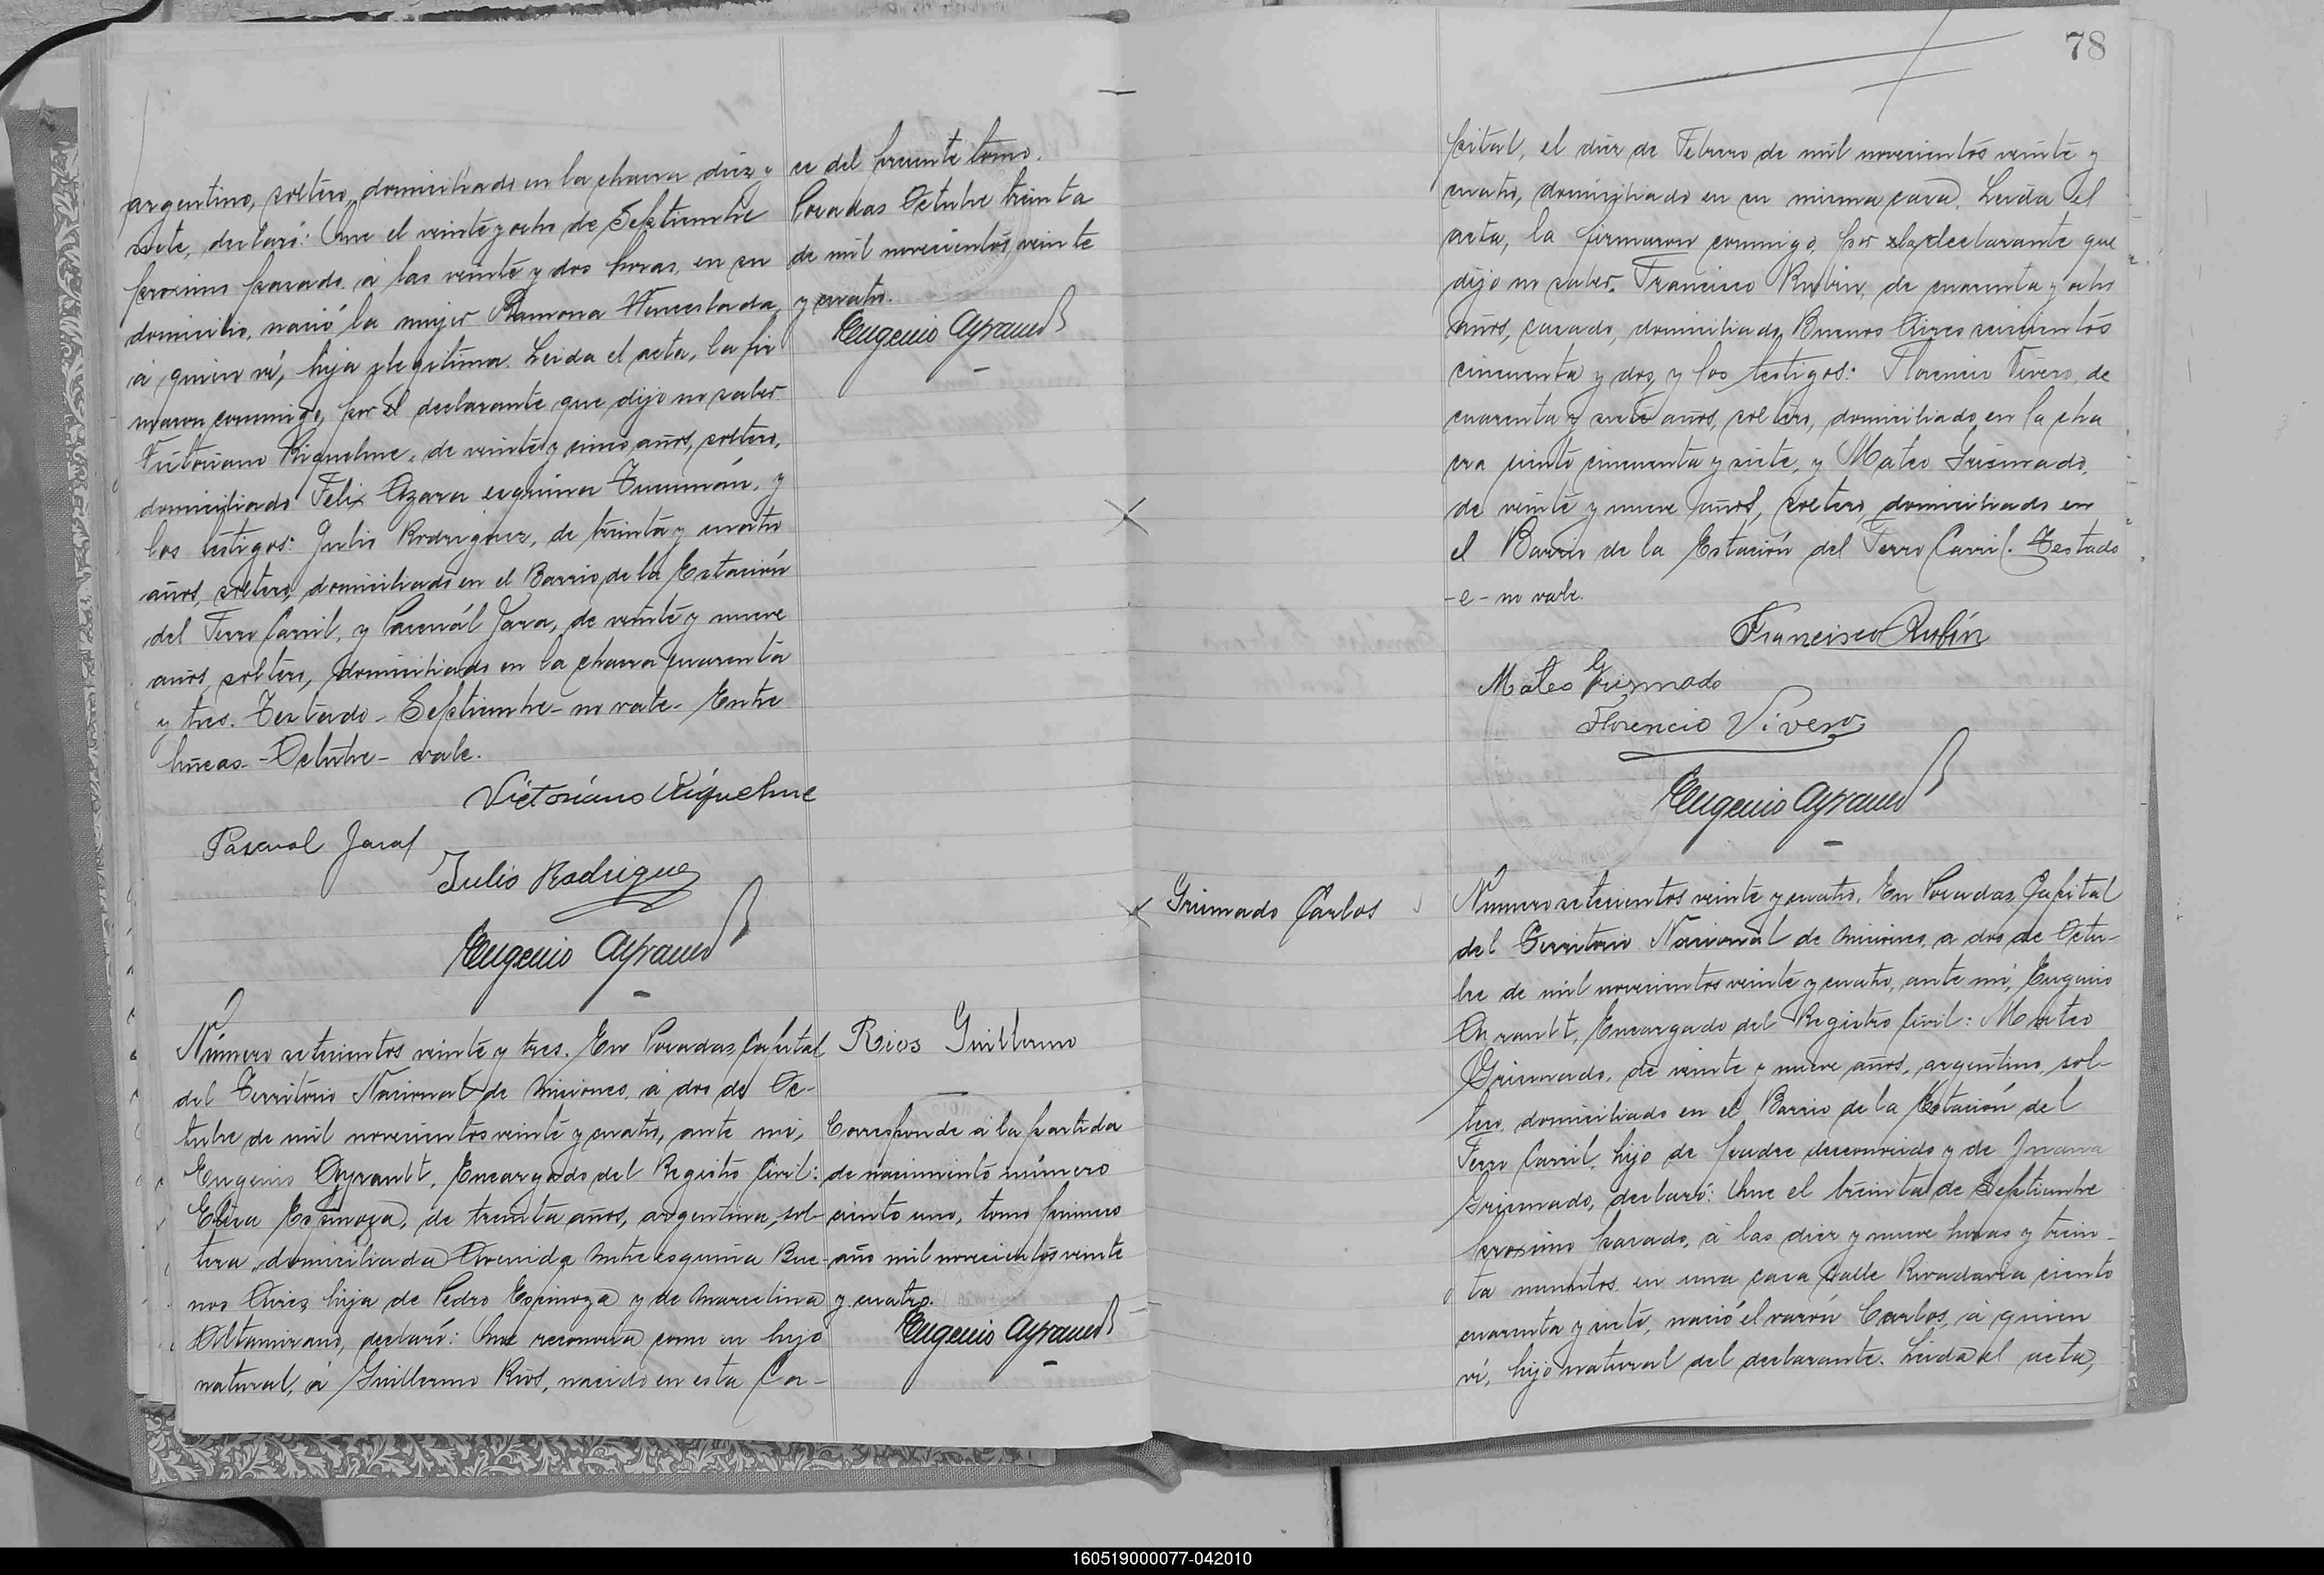 argentino, soltero, domiciliado en la chacra diez y
siete, declaró: Que el veinte y ocho de Septiembre
proximo pasado á las veinte y dos horas, en su
domicilio, nació la mujer Ramona Wenceslada,
á quien ví, hija ilegítima. Leida el acta, la fir
maron conmigo, por el declarante que dijo no saber
Victoriano Riquelme, de veinte y cinco años, soltero,
domiciliado Felix Azara esquina Tucumán, y
los testigos: Julio Rodriguez, de treinta y cuatro
años, soltero, domiciliado en el Barrio de la Estación
del Ferro Carril, y Pascuál Jara, de veinte y nueve
años, soltero, domiciliado en la chacra cuarenta
y tres. Testado - Septiembre - no vale - Entre
lineas - Octubre - vale.
Victoriano Riquelme
Pascual Jara
Julio Rodriguez
Eugenio Ayrault
Número setecientos veinte y tres. En Posadas, Capital
del Territorio Nacional de Misiones, á dos de Oc-
tubre de mil novecientos veinte y cuatro, ante mi,
Eugenio Ayrault, Encargado del Registro Civil:
Elisa Espinoza, de treinta años, argentina, sol-
tera, domiciliada Avenida Mitre esquina Bue-
nos Aires hija de Pedro Espinoza y de Marcelina
Altamirano, declaró: Que reconocia como su hijo
natural, á Guillermo Rios, nacido en esta Ca-
ce del presente tomo.
Posadas Octubre treinta
de mil novecientos veinte
y cuatro.
Eugenio Ayrault
Rios Guillermo
Corresponde á la partida
de nacimiento número
ciento uno, tomo primero
año mil novecientos veinte
y cuatro.
Eugenio Ayrault
78
pital, el diez de Febrero de mil novecientos veinte y
cuatro, domiciliado en su misma casa. Leida el
acta, la firmaron conmigo, por la declarante que
dijo no saber, Francisco Rubin, de cuarenta y ocho
años, casado, domiciliado Buenos Aires seiscientos
cincuenta y dos, y los testigos: Florencio Vivero, de
cuarenta y siete años, soltero, domiciliado en la cha
cra ciento cincuenta y siete, y Mateo Grismado,
de veinte y nueve años, soltero, domiciliado en
el Barrio de la Estación del Ferro Carril. Testado
- e - no vale.
Francisco Rubín
Mateo Grismado
Florencio Vivero
Eugenio Ayrault
Grismado Carlos
Número setecientos veinte y cuatro. En Posadas, Capital
del Territorio Nacional de Misiones, a dos de Octu-
bre de mil novecientos veinte y cuatro, ante mi, Eugenio
Ayrault, Encargado del Registro Civil: Mateo
Grismado, de veinte y nueve años, argentino, sol-
tero, domiciliado en el Barrio de la Estación del
Ferro Carril, hijo de padre desconocido y de Juana
Grismado, declaró: Que el treinta de Septiembre
proximo pasado, á las diez y nueve horas y trein-
ta minutos en una casa Calle Rivadavia ciento
cuarenta y siete, nació el varón Carlos, á quien
ví, hijo natural del declarante. Leida el acta,
160519000077-042010